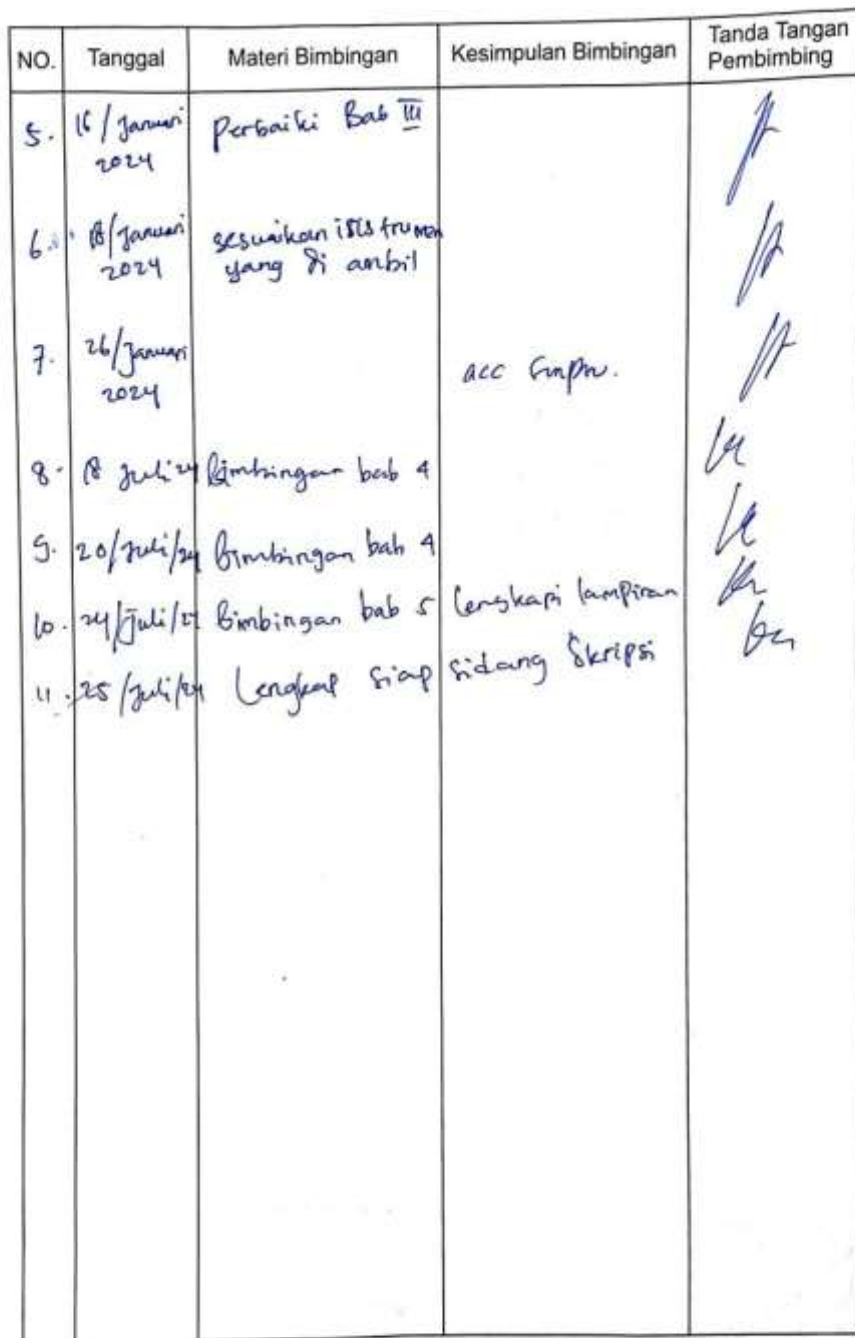 NO. Tanggal Materi Bimbingan Kesimpulan Bimbingan Tanda Tangan
Pembimbing
5. 16/Januari Perbaiki Bab III
2024
6. 18/Januari sesuaikan
2024 yang di ambil
7. 26/Januari acc
2024
8. 18 Juli 24 Bimbingan bab 4
9. 20/Juli/24 Bimbingan bab 4
10. 24/Juli/24 Bimbingan bab 5 lengkapi lampiran
11. 25/Juli/24 Lengkap siap sidang Skripsi